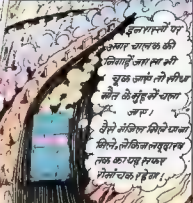 इन रास्तों पर
अगर चालक की
निगाहें जरा सा भी
चूक जाएं तो सीधा
मौत के मुंह में चला
जाए।
वैसे मंजिल मिले या न
मिले, लेकिन
तक का यह सफर
रोमांचक रहेगा।